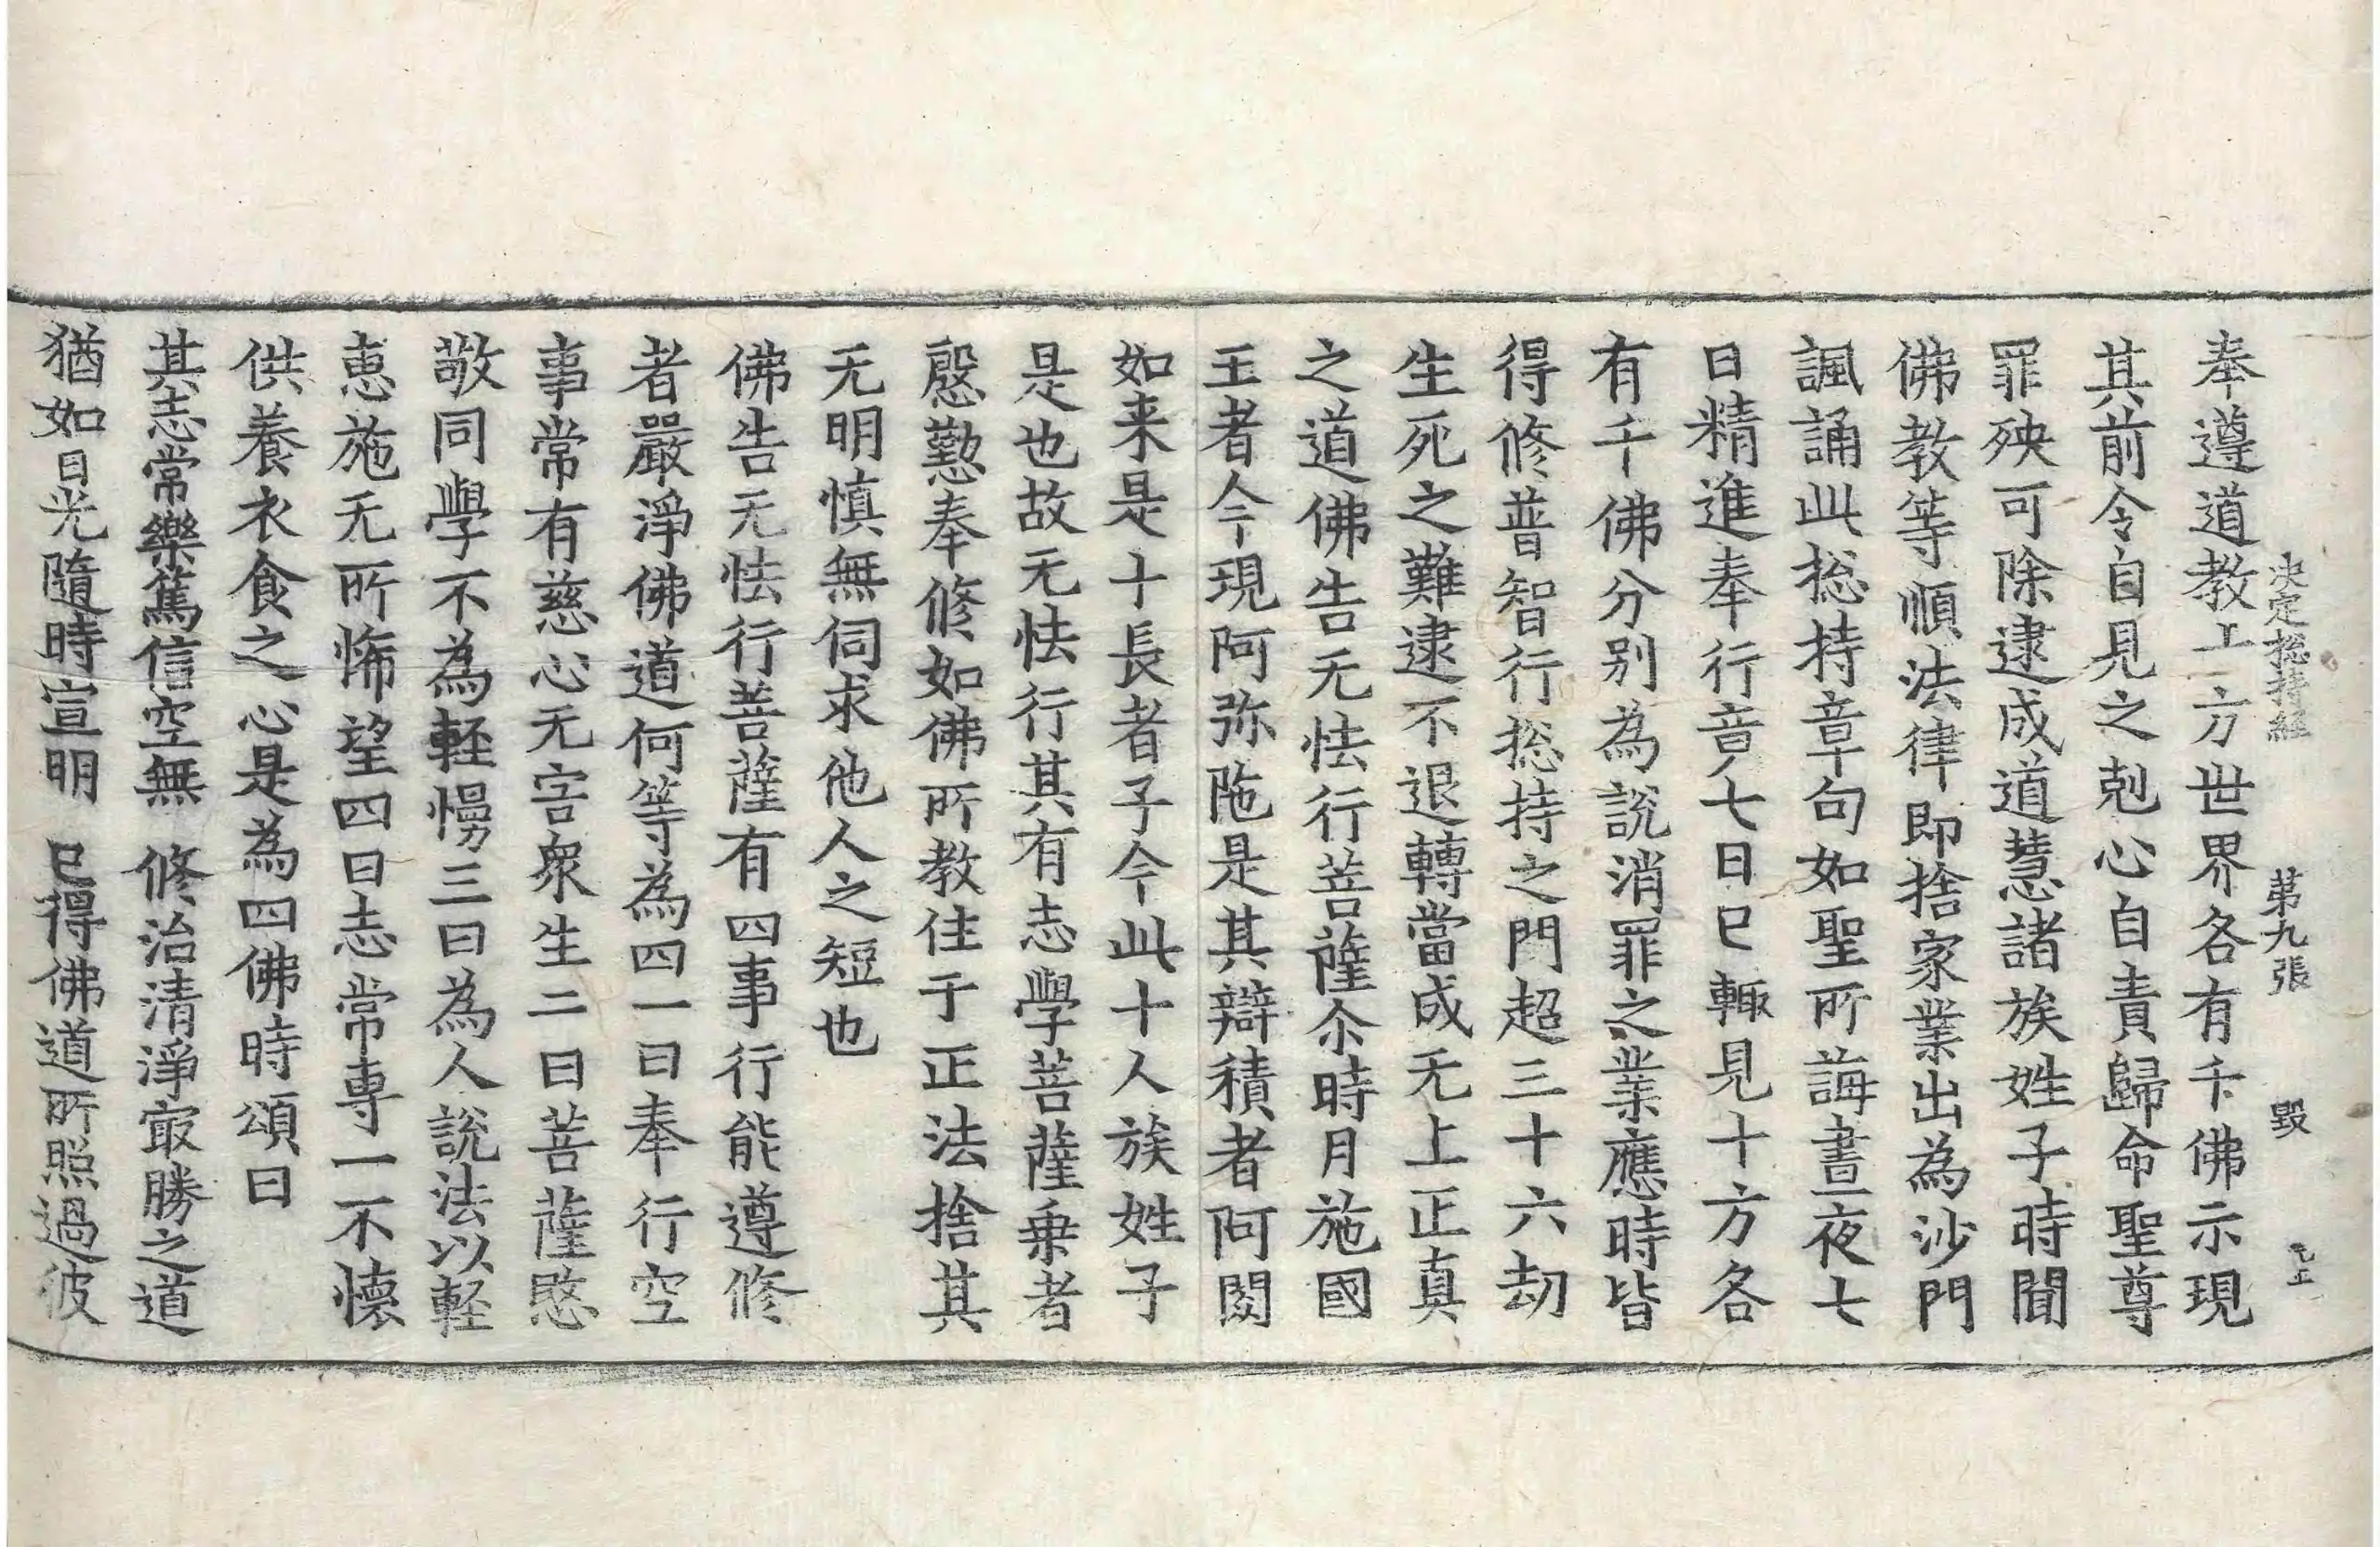 決定捴持經 第九張 毀
奉遵道教十方世界各有千佛示現
其前令自見之剋心自責歸命聖尊
罪殃可除逮成道慧諸族姓子時聞
佛教等順法律即捨家業出為沙門
諷誦此捴持章句如聖所誨晝夜七
日精進奉行竟七日已輙見十方各
有千佛分別為說消罪之業應時皆
得修普智行捴持之門超三十六劫
生死之難逮不退轉當成无上正真
之道佛告无怯行菩薩尒時月施國
王者今現阿弥陁是其辯積者阿閦
如来是十長者子今此十人族姓子
是也故无怯行其有志學菩薩乗者
慇懃奉修如佛所教住于正法捨其
无明慎無伺求他人之短也
佛告无怯行菩薩有四事行能遵修
者嚴淨佛道何等為四一曰奉行空
事常有慈心无害衆生二曰菩薩愍
敬同學不為輕慢三曰為人說法以輕
惠施无所悕望四曰志常專一不懷
供養衣食之心是為四佛時頌曰
其志常樂篤信空無 修治清淨冣勝之道
猶如日光隨時宣明 已得佛道所照過彼